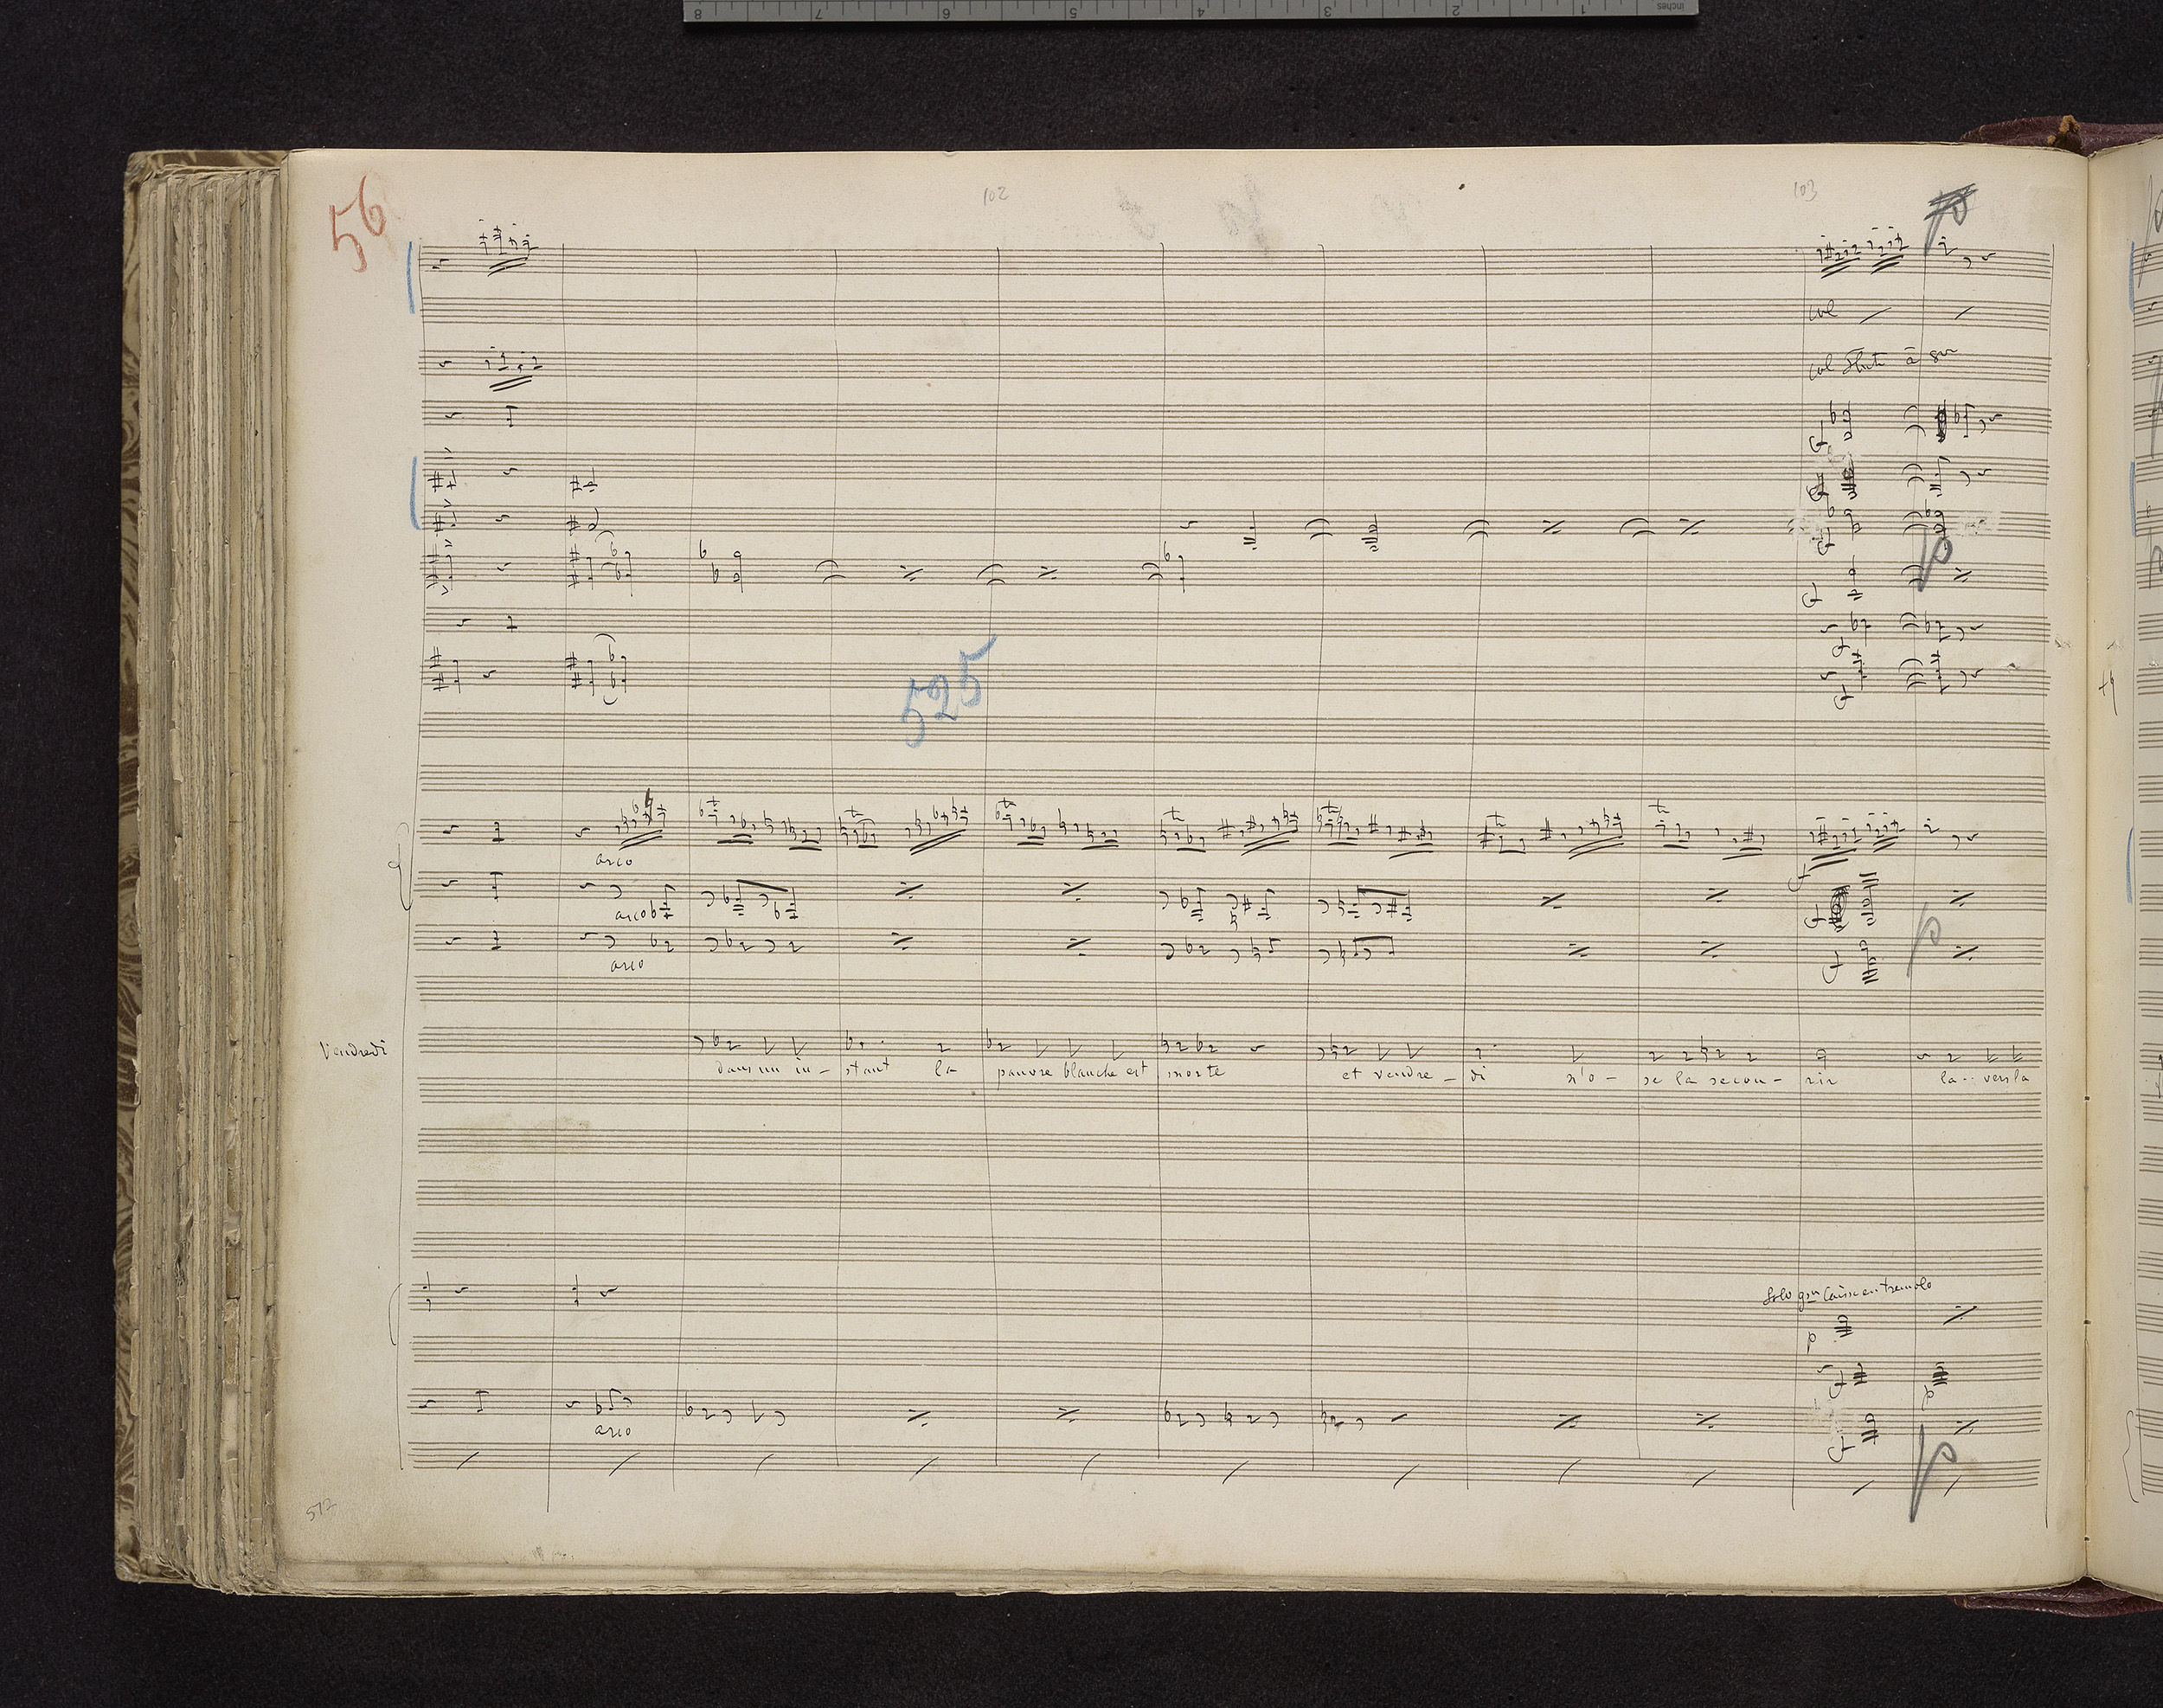 8 7 6 5 4 3 2 1 inches
56
102 103
p
col
col flute à
f
f
f
p
f
f
f
525
arco
f
arco
f
p
arco
f
Vendredi
dans un in - stant la pauvre blanche est morte et vendre - di n'o - se la secou - rir la .. vers la
Solo gr Caisse en tremolo
p
f
p
arco
f
p
512